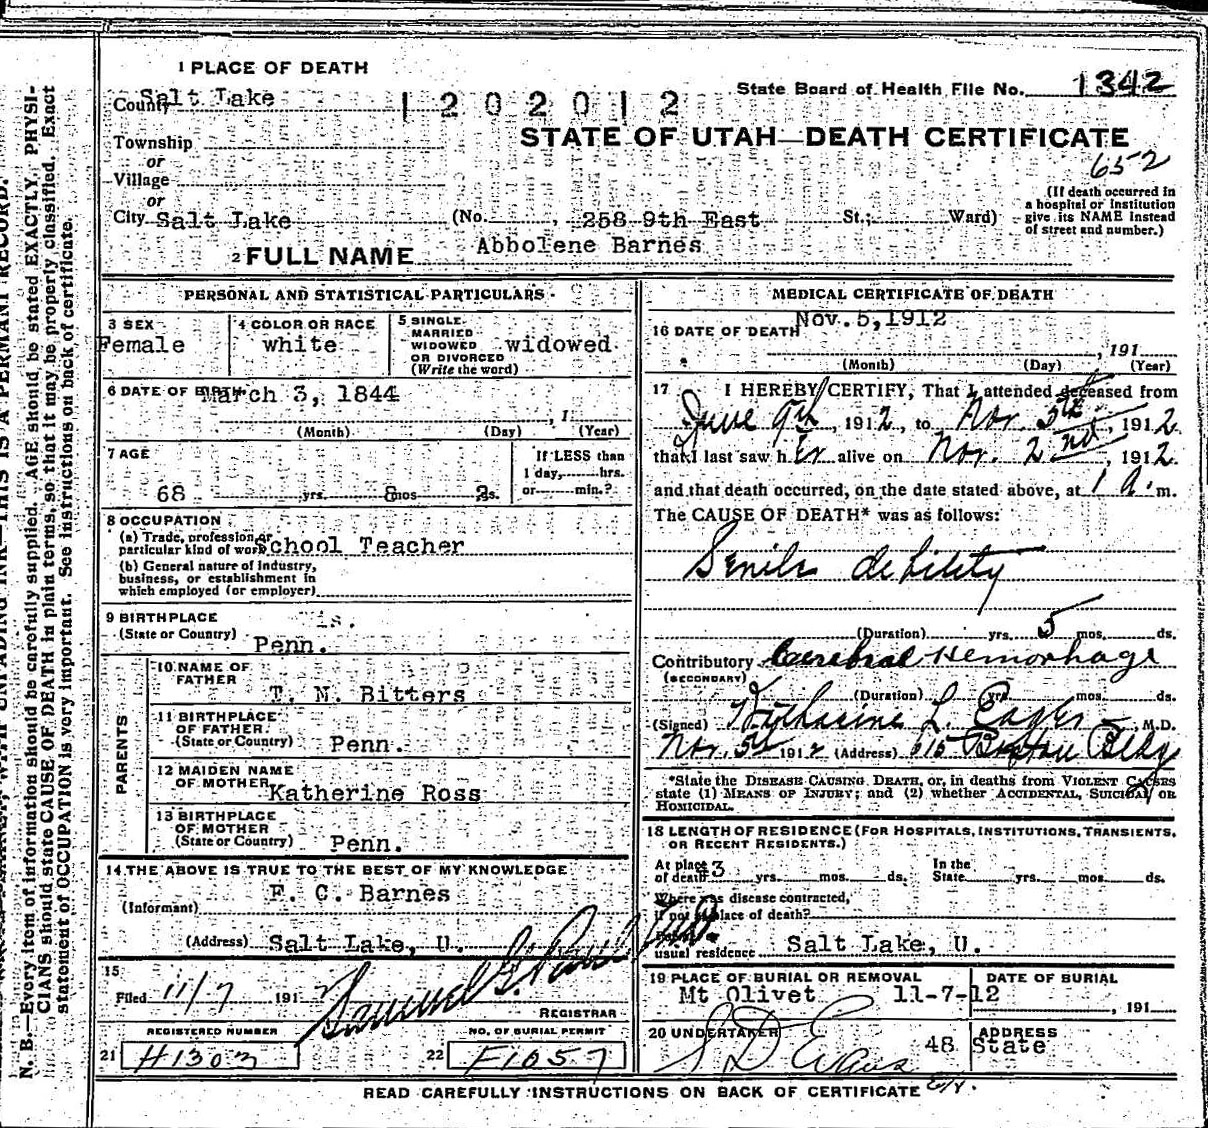 1 PLACE OF DEATH
County Salt Lake
1 2 0 2 0 1 2
State Board of Health File No. 1342
STATE OF UTAH—DEATH CERTIFICATE
652
Township
or
Village
or
City Salt Lake (No. , 258 9th East St.; Ward)
(If death occurred in
a hospital or institution
give its NAME instead
of street and number.)
2 FULL NAME Abbolene Barnes
PERSONAL AND STATISTICAL PARTICULARS
3 SEX
Female
4 COLOR OR RACE
white
5 SINGLE
MARRIED
WIDOWED
OR DIVORCED
(Write the word)
widowed
6 DATE OF BIRTH March 3, 1844
, 1
(Month) (Day) (Year)
7 AGE
68 yrs. 8 mos 2 ds.
If LESS than
1 day, hrs.
or min.?
8 OCCUPATION
(a) Trade, profession or
particular kind of work School Teacher
(b) General nature of industry,
business, or establishment in
which employed (or employer)
9 BIRTHPLACE
(State or Country)
Penn.
PARENTS
10 NAME OF
FATHER
T. N. Bitters
11 BIRTHPLACE
OF FATHER
(State or Country) Penn.
12 MAIDEN NAME
OF MOTHER Katherine Ross
13 BIRTHPLACE
OF MOTHER
(State or Country) Penn.
14 THE ABOVE IS TRUE TO THE BEST OF MY KNOWLEDGE
(Informant) F. C. Barnes
(Address) Salt Lake, U.
15
Filed 11/7 191
REGISTRAR
REGISTERED NUMBER
21 H1303
NO. OF BURIAL PERMIT
22 F1057
MEDICAL CERTIFICATE OF DEATH
16 DATE OF DEATH Nov. 5, 1912
, 191
(Month) (Day) (Year)
17 I HEREBY CERTIFY, That I attended deceased from
June 9th, 1912, to Nov 5th, 1912.
that I last saw her alive on Nov. 2nd, 1912.
and that death occurred, on the date stated above, at 1 a. m.
The CAUSE OF DEATH* was as follows:
Senile debility
(Duration) yrs. 5 mos. ds.
Contributory Cerebral Hemorhage
(SECONDARY)
(Duration) yrs. mos. ds.
(Signed) Katharine L. M.D.
Nov. 5th 1912 (Address) 615 Boston Bldg
*State the DISEASE CAUSING DEATH, or, in deaths from VIOLENT CAUSES
state (1) MEANS OF INJURY; and (2) whether ACCIDENTAL, SUICIDAL OR
HOMICIDAL.
18 LENGTH OF RESIDENCE (FOR HOSPITALS, INSTITUTIONS, TRANSIENTS,
OR RECENT RESIDENTS.)
At place
of death 3 yrs. mos. ds.
In the
State yrs. mos. ds.
Where was disease contracted,
if not at place of death?
usual residence Salt Lake, U.
19 PLACE OF BURIAL OR REMOVAL
Mt Olivet
DATE OF BURIAL
11-7-12
, 191
20 UNDERTAKER
S D Evans
ADDRESS
48 State
READ CAREFULLY INSTRUCTIONS ON BACK OF CERTIFICATE
N. B.—Every item of information should be carefully supplied. AGE should be stated EXACTLY. PHYSI-
CIANS should state CAUSE OF DEATH in plain terms, so that it may be properly classified. Exact
statement of OCCUPATION is very important. See instructions on back of certificate.